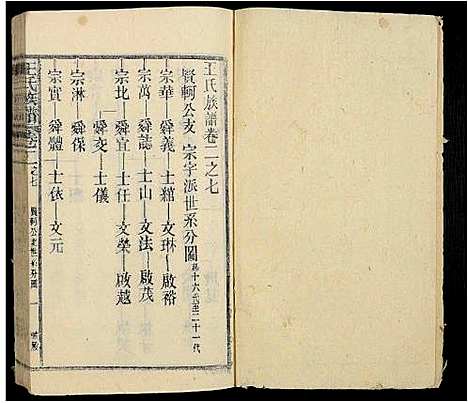 王氏族譜卷二之七
賢軻公支 宗字派世系分圖 第十六代至二十一代
宗華 舜義 士綰 文琳 啟裕
宗萬 舜誌 士山 文法 啟茂
宗北 舜宜 士任 文榮 啟越
舜交 士儀
宗淋 舜保
宗實 舜體 士依 文元
王氏族譜 卷二之七 賢軻公支世系分圖 一